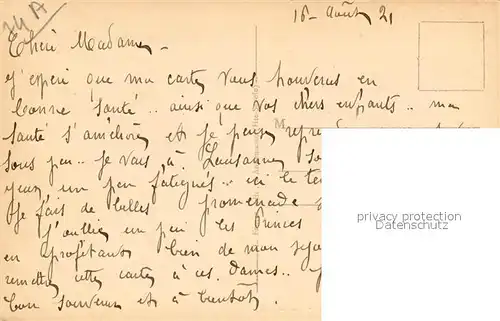 24A
16 - Août 21
Chère Madame -
J'espère que ma carte vous trouvera en
bonne santé .. ainsi que vos chers enfants .. ma
santé s'améliore et je peux
sous peu .. je vais à Lausanne
yeux un peu fatigués .. ici le
Je fais de belles promenade
J'oublie un peu les
en profitant bien de mon
remettre cette carte à ces Dames ..
bon souvenir et à bientôt.
privacy protection
Datenschutz